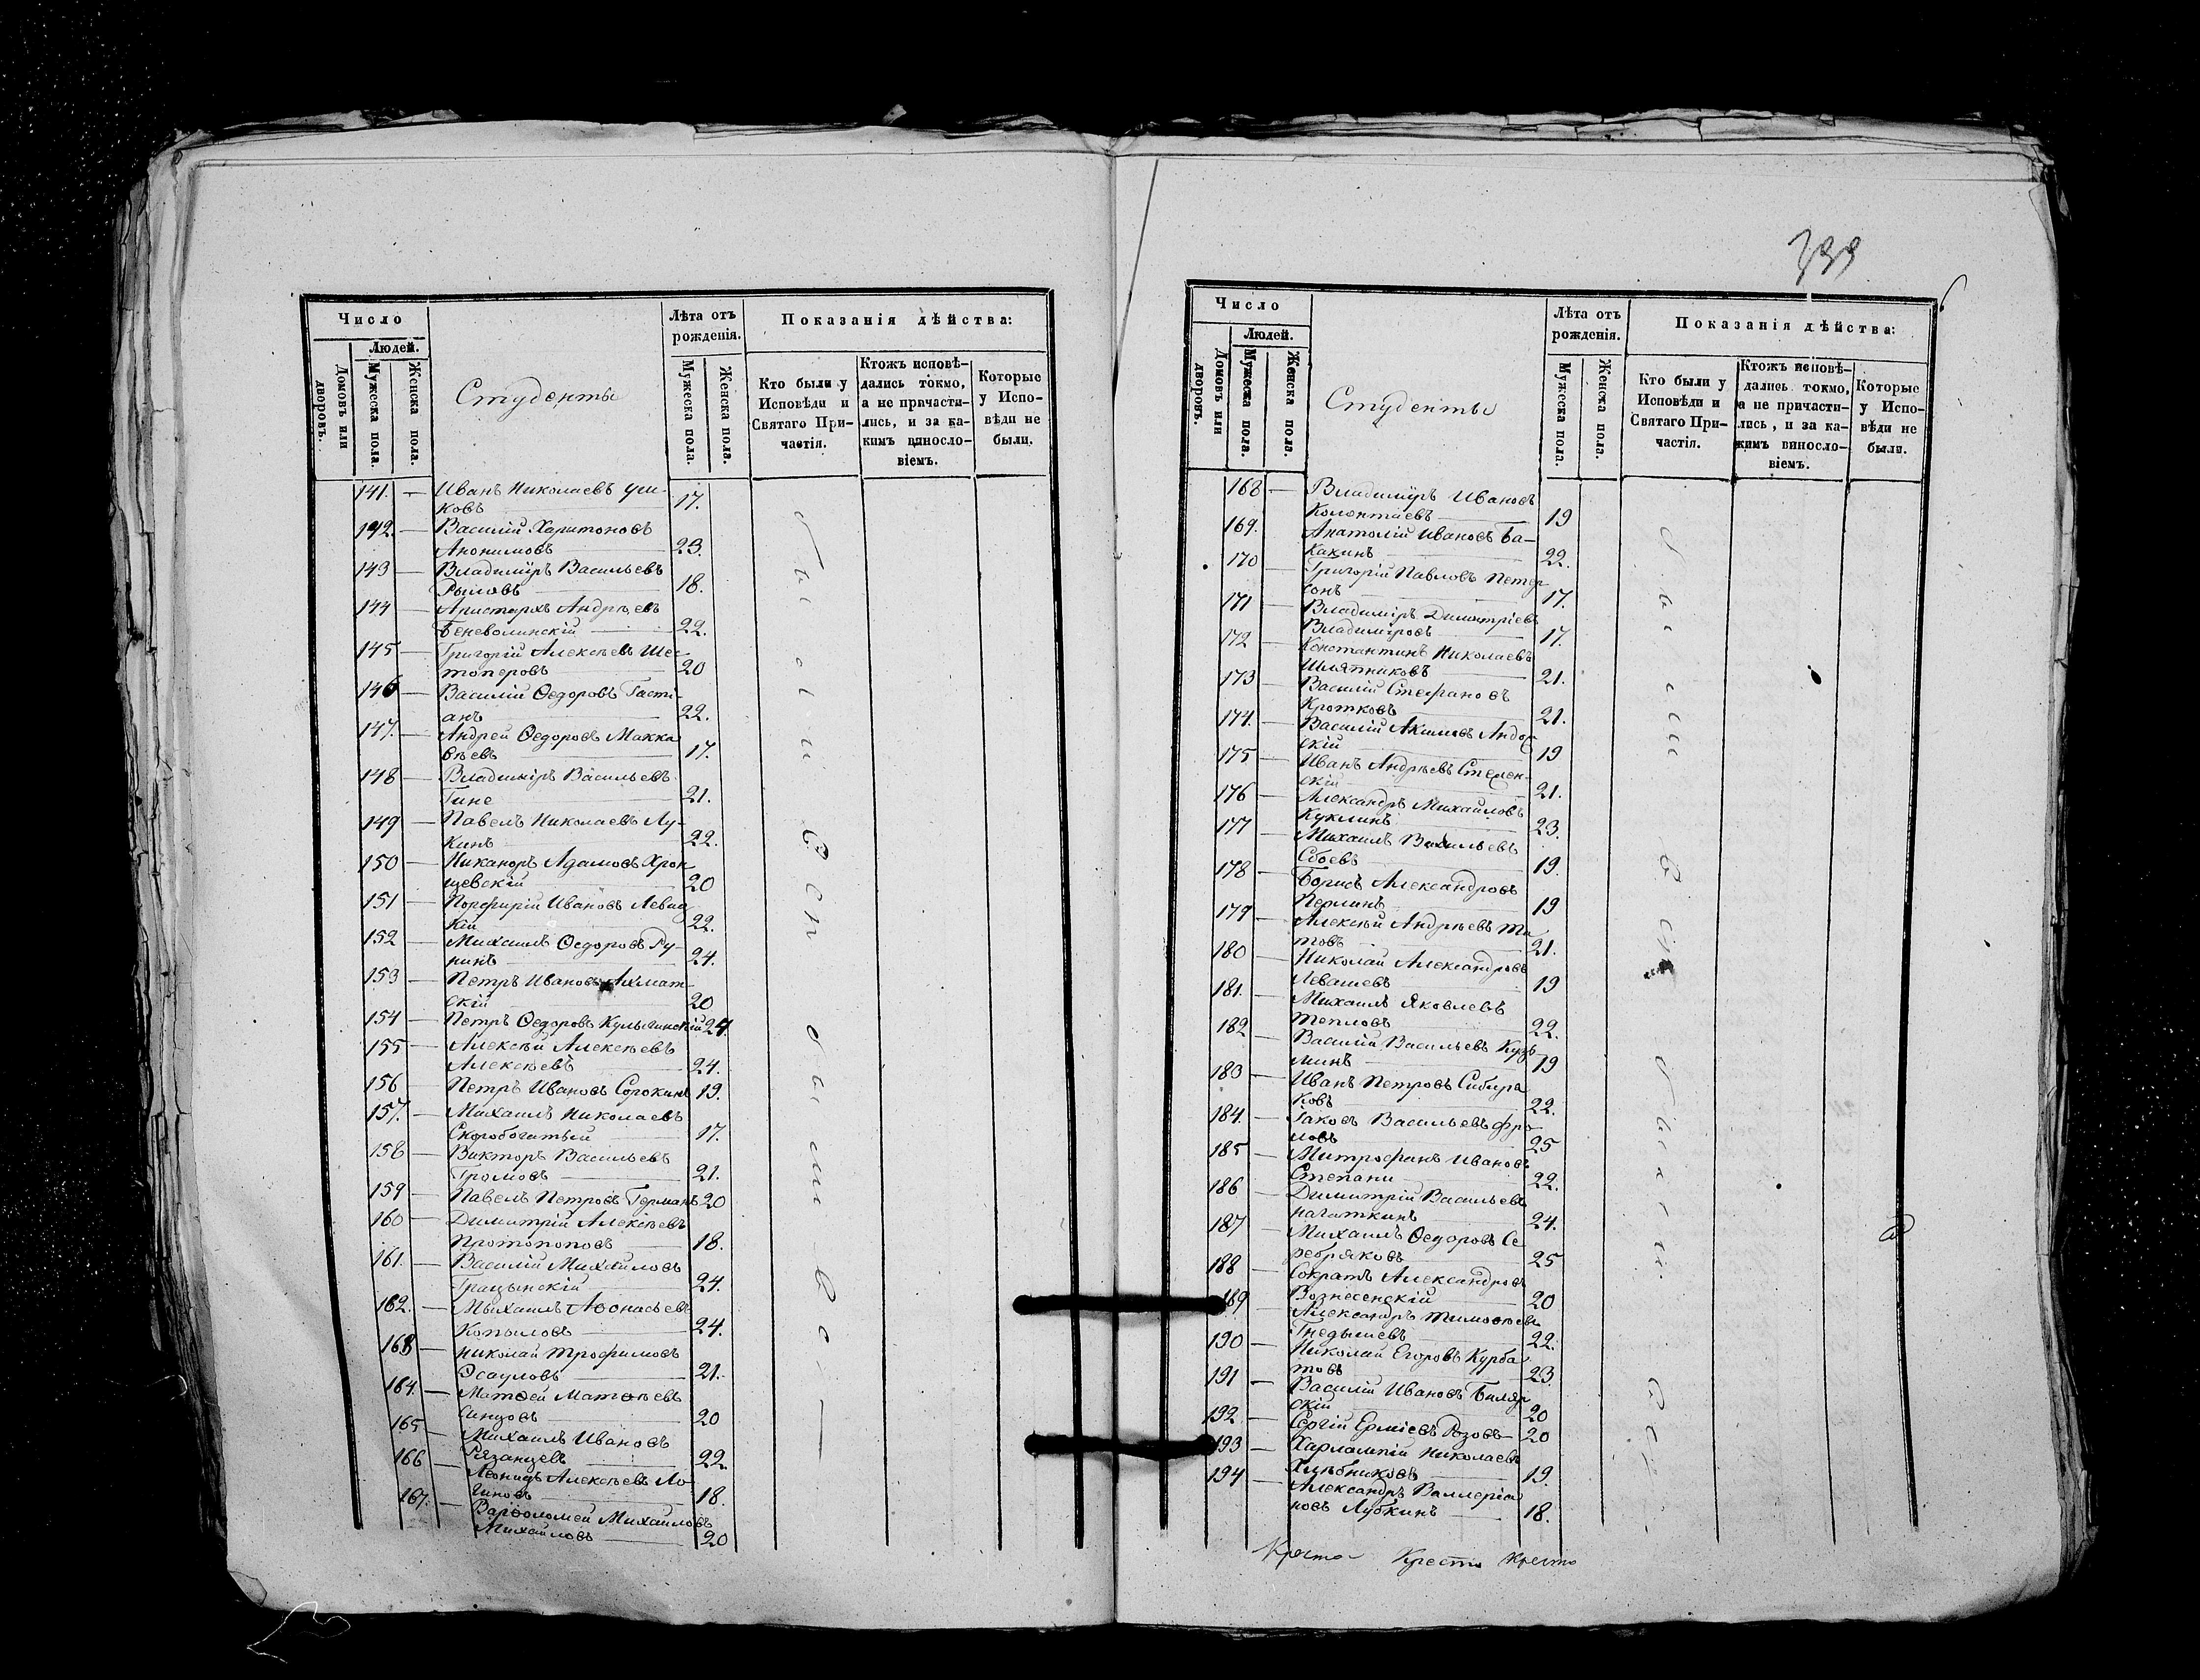 Число
Людей.
Домовъ или дворовъ.
Мужеска пола.
Женска пола.
Студенты
Лѣта отъ рожденія.
Мужеска пола.
Женска пола.
Показанія дѣйства:
Кто были у Исповѣди и Святаго Причастія.
Ктожъ исповѣдались токмо, а не причастились, и за какимъ винословіемъ.
Которые у Исповѣди не были.
141. — Иванъ Николаевъ
ковъ 17.
142. — Василій Харитоновъ
Анонимовъ 23.
143 — Владиміръ Васильевъ
18.
144 — Аристархъ Андрѣевъ
Беневолинскій 22.
145 — Григорій Алексѣевъ Шес
топеровъ 20
146 — Василій Ѳедоровъ Гасти-
анъ 22.
147. — Андрей Ѳедоровъ Макка
вѣевъ 17.
148 — Владиміръ Васильевъ
Гине 21.
149 — Павелъ Николаевъ Лу-
кинъ 22.
150 — Никаноръ Адамовъ Хрон
щевскій 20
151 — Порфирій Ивановъ Левиц
кій 22.
152 — Михаилъ Ѳедоровъ Ру-
нинъ 24.
153 — Петръ Ивановъ Ахмат
скій 20
154 — Петръ Ѳедоровъ 24.
155 — Алексѣй Алексѣевъ
Алексѣевъ 24.
156 — Петръ Ивановъ Сорокинъ 19.
157. — Михаилъ Николаевъ
Скоробогатый 17.
158 — Викторъ Васильевъ
Громовъ 21.
159 — Павелъ Петровъ Германъ 20
160 — Димитрій Алексѣевъ
Протопоповъ 18.
161. — Василій Михайловъ
Грацынскій 24.
162. — Михаилъ Аѳонасьевъ
Копыловъ 24.
163 — Николай Трофимовъ
Эсауловъ 21.
164. — Матѳей Матѳѣевъ
Синцовъ 20
165 — Михаилъ Ивановъ
Рязанцевъ 22.
166 — Леонидъ Алексѣевъ Ло-
гиновъ 18.
167. — Варѳоломей Михайловъ
Михайловъ 20
были
у
сп
были
во
399
Число
Людей.
Домовъ или дворовъ.
Мужеска пола.
Женска пола.
Студенты
Лѣта отъ рожденія.
Мужеска пола.
Женска пола.
Показанія дѣйства:
Кто были у Исповѣди и Святаго Причастія.
Ктожъ исповѣдались токмо, а не причастились, и за какимъ винословіемъ.
Которые у Исповѣди не были.
168 — Владиміръ Ивановъ
Колонтаевъ 19
169. Анатолій Ивановъ Ба-
какинъ 22.
170 — Григорій Павловъ Петер
сонъ 17.
171 — Владиміръ Димитріевъ
Владиміровъ 17.
172 — Константинъ Николаевъ
Шляпниковъ 21.
173 — Василій Стефановъ
Кротковъ 21.
174. — Василій Акимовъ Андор
скій 19
175 — Иванъ Андрѣевъ
скій 21.
176 — Александръ Михайловъ
Куклинъ 23.
177 — Михаилъ Васильевъ
Сбоевъ 19.
178 — Борисъ Александровъ
Перлинъ 19
179 — Алексѣй Андрѣевъ Ти
товъ 21.
180 — Николай Александровъ
Левашевъ 19
181. — Михаилъ Яковлевъ
Тепловъ 22.
182 — Василій Васильевъ Кузь
минъ 19
183 — Иванъ Петровъ Сибиря
ковъ 22.
184. — Іаковъ Васильевъ Фро
ловъ 25
185 — Митрофанъ Ивановъ
22.
186 — Димитрій Васильевъ
24.
187 — Михаилъ Ѳедоровъ Се
ребряковъ 25
188 — Сократъ Александровъ
Вознесенскій 20
189 Александръ Тимоѳѣевъ
Гнедышевъ 22.
190 — Николай Егоровъ Курба
товъ 23.
191 — Василій Ивановъ Биляр
скій 20
192 — Сергій Ерміевъ Розовъ — 20
193 — Харлампій Николаевъ
Хлѣбниковъ 19.
194 — Александръ Валлеріа
новъ Лубкинъ 18.
Кресто Кресто Кресто